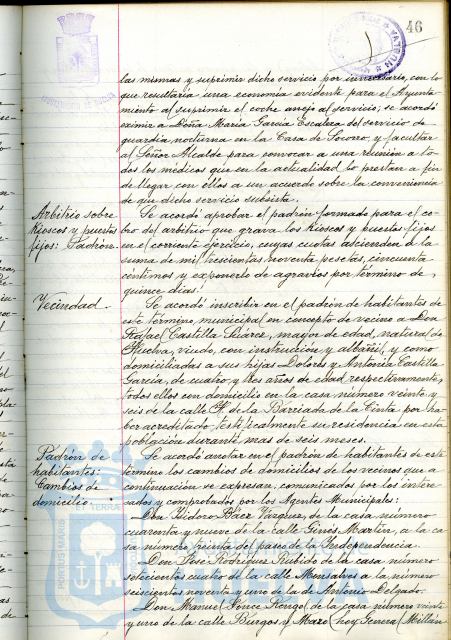 46
las mismas y suprimir dicho servicio por innecesario, con lo
que resultaría una economía evidente para el Ayunta-
miento al suprimir el coche anejo al servicio; se acordó
eximir a Doña María García Escalera del servicio de
guardia nocturna en la Casa de Socorro y facultar
al Señor Alcalde para convocar a una reunión a to-
dos los médicos que en la actualidad lo prestan a fin
de llegar con ellos a un acuerdo sobre la conveniencia
de que dicho servicio subsista.
Arbitrio sobre
Kioscos y puestos
fijos: Padrón.
Se acordó aprobar el padrón formado para el co-
bro del arbitrio que grava los Kioscos y puestos fijos
en el corriente ejercicio, cuyas cuotas ascienden a la
suma de mil trescientas noventa pesetas, cincuenta
céntimos y exponerlo de agravios por término de
quince días.
Vecindad.
Se acordó inscribir en el padrón de habitantes de
este término municipal en concepto de vecino a Don
Rafael Castilla Suárez, mayor de edad, natural de
Huelva, viudo, con instrucción y albañil, y como
domiciliadas a sus hijas Dolores y Antonia Castilla
García, de cuatro y tres años de edad respectivamente,
todos ellos con domicilio en la casa número veinte y
seis de la calle de la Barriada de la Cinta por ha-
ber acreditado testificalmente su residencia en esta
población durante mas de seis meses.
Padrón de
habitantes:
Cambios de
domicilio
Se acordó anotar en el padrón de habitantes de este
término los cambios de domicilios de los vecinos que a
continuación se expresan, comunicados por los intere-
sados y comprobados por los Agentes Municipales:
Don Isidoro Báez Vázquez, de la casa número
cuarenta y nueve de la calle Ginés Martín, a la ca-
sa número treinta del paseo de la Independencia.
Don José Rodríguez Rubido de la casa número
setecientos cuatro de la calle Mensalves a la número
seiscientos noventa y uno de la de Antonio Delgado.
Don Manuel Ponce Rengo, de la casa número veinte
y uno de la calle Burgos y Mazo (hoy General Millán
PORTUS MARIS
TERRAE